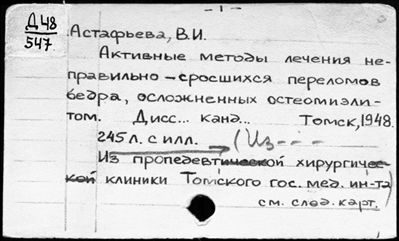 - 1 -
Д48
547
Астафьева, В.И.
Активные методы лечения не-
правильно-сросшихся переломов
бедра, осложненных остеомиэли-
том. Дисс... канд... Томск, 1948.
245 л. с илл. (Из ---
Из пропедевтической хирургичес-
кой клиники Томского гос. мед. ин-та)
см. след. карт.